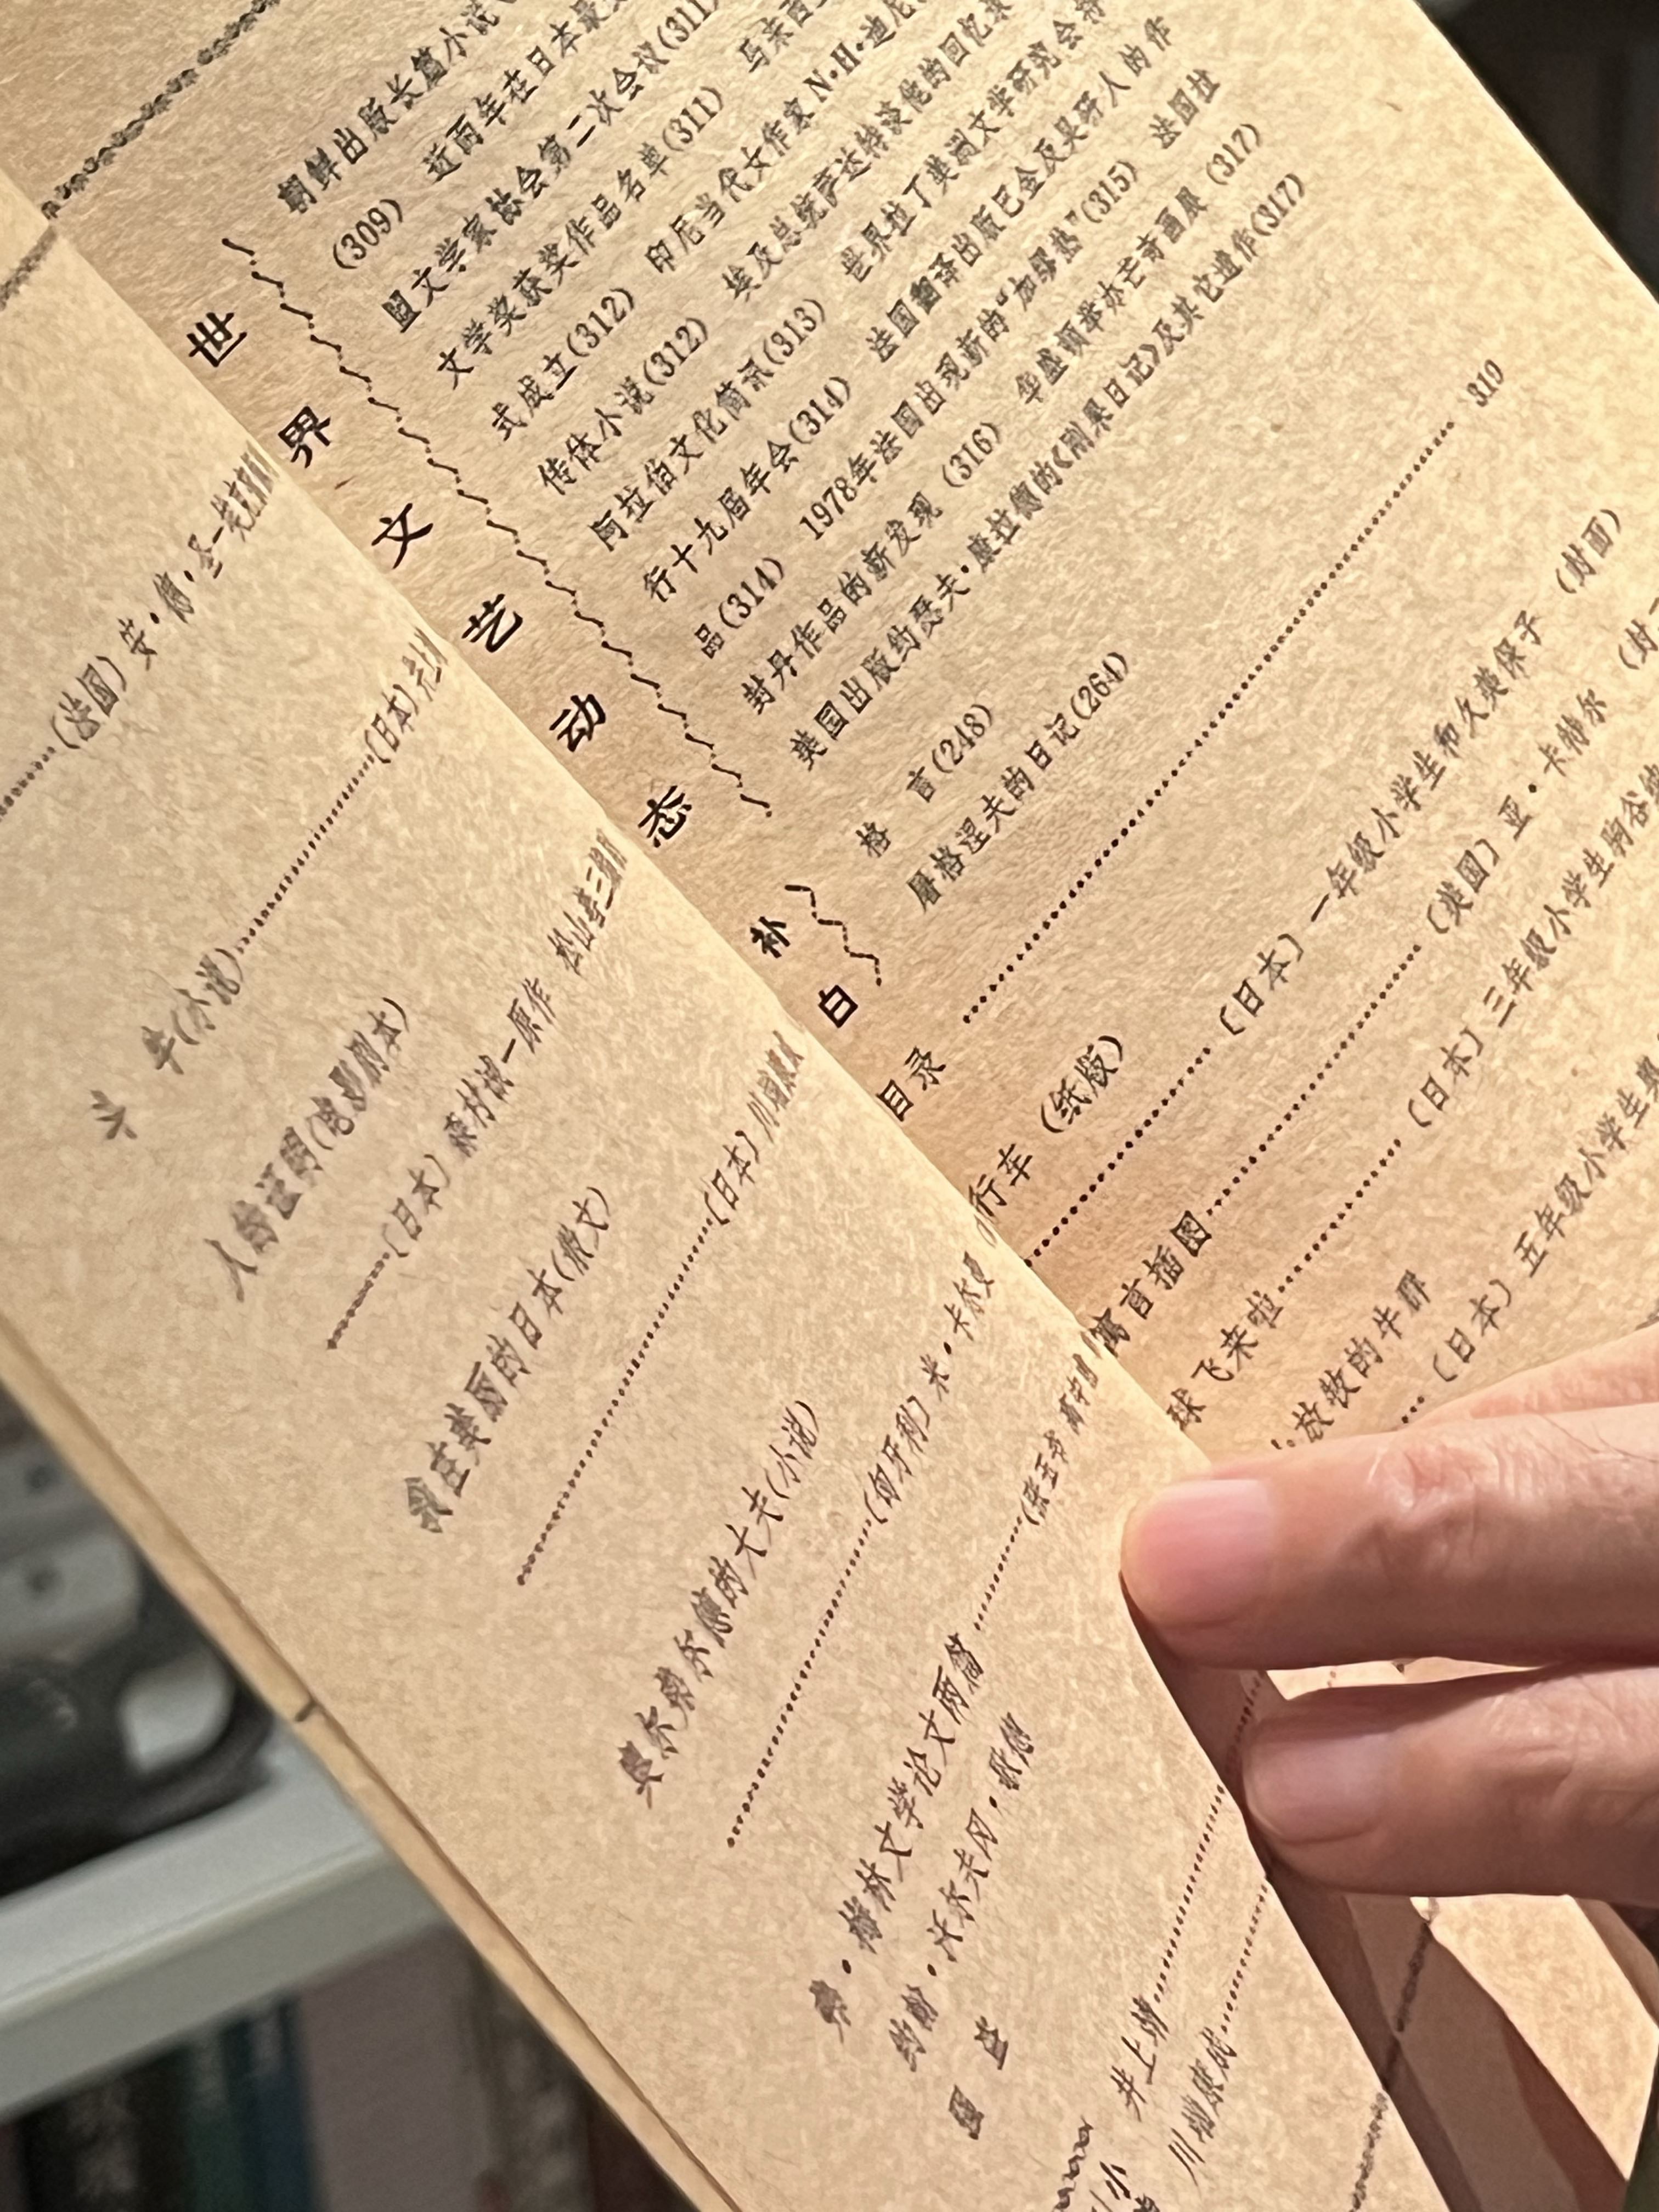 ……(法国) 安·德·圣-埃克
斗　牛(小说)……(日本)
人的证明(电影剧本)
……(日本) 森村诚一原作 松山善三
我在美丽的日本(散文)
……(日本) 川端康成
贝尔蒙尔德的大夫(小说)
……(匈牙利) 米·卡尔曼
弗·梅林文学论文两篇……(张玉书
约翰·沃尔夫冈·歌德
井上靖……
川端康成……
世界文艺动态
朝鲜出版长篇小说
(309)　近两年在日本最
盟文学家协会第二次会议(311)　马来西
文学奖获奖作品名单(311)
式成立(312)　印尼当代女作家N·H·迪尼
传体小说(312)　埃及总统萨达特谈他的回忆录
阿拉伯文化简讯(313)　世界拉丁美洲文学研究会举
行十九届年会(314)　法国翻译出版巴金及吴研人的作
品(314)　1978年法国出现新的“加缪热”(315)　法国拉
封丹作品的新发现 (316)　华盛顿举办芒奇画展 (317)
美国出版约瑟夫·康拉德的《刚果日记》及其它遗作(317)
补白
格　言(248)
屠格涅夫的日记(264)
目录……319
行车 (纸版)
……〔日本〕一年级小学生和久英保子 (封面)
寓言插图……〔美国〕亚·卡特尔 (封
球飞来啦……〔日本〕三年级小学生驹谷
放牧的牛群
……〔日本〕五年级小学生